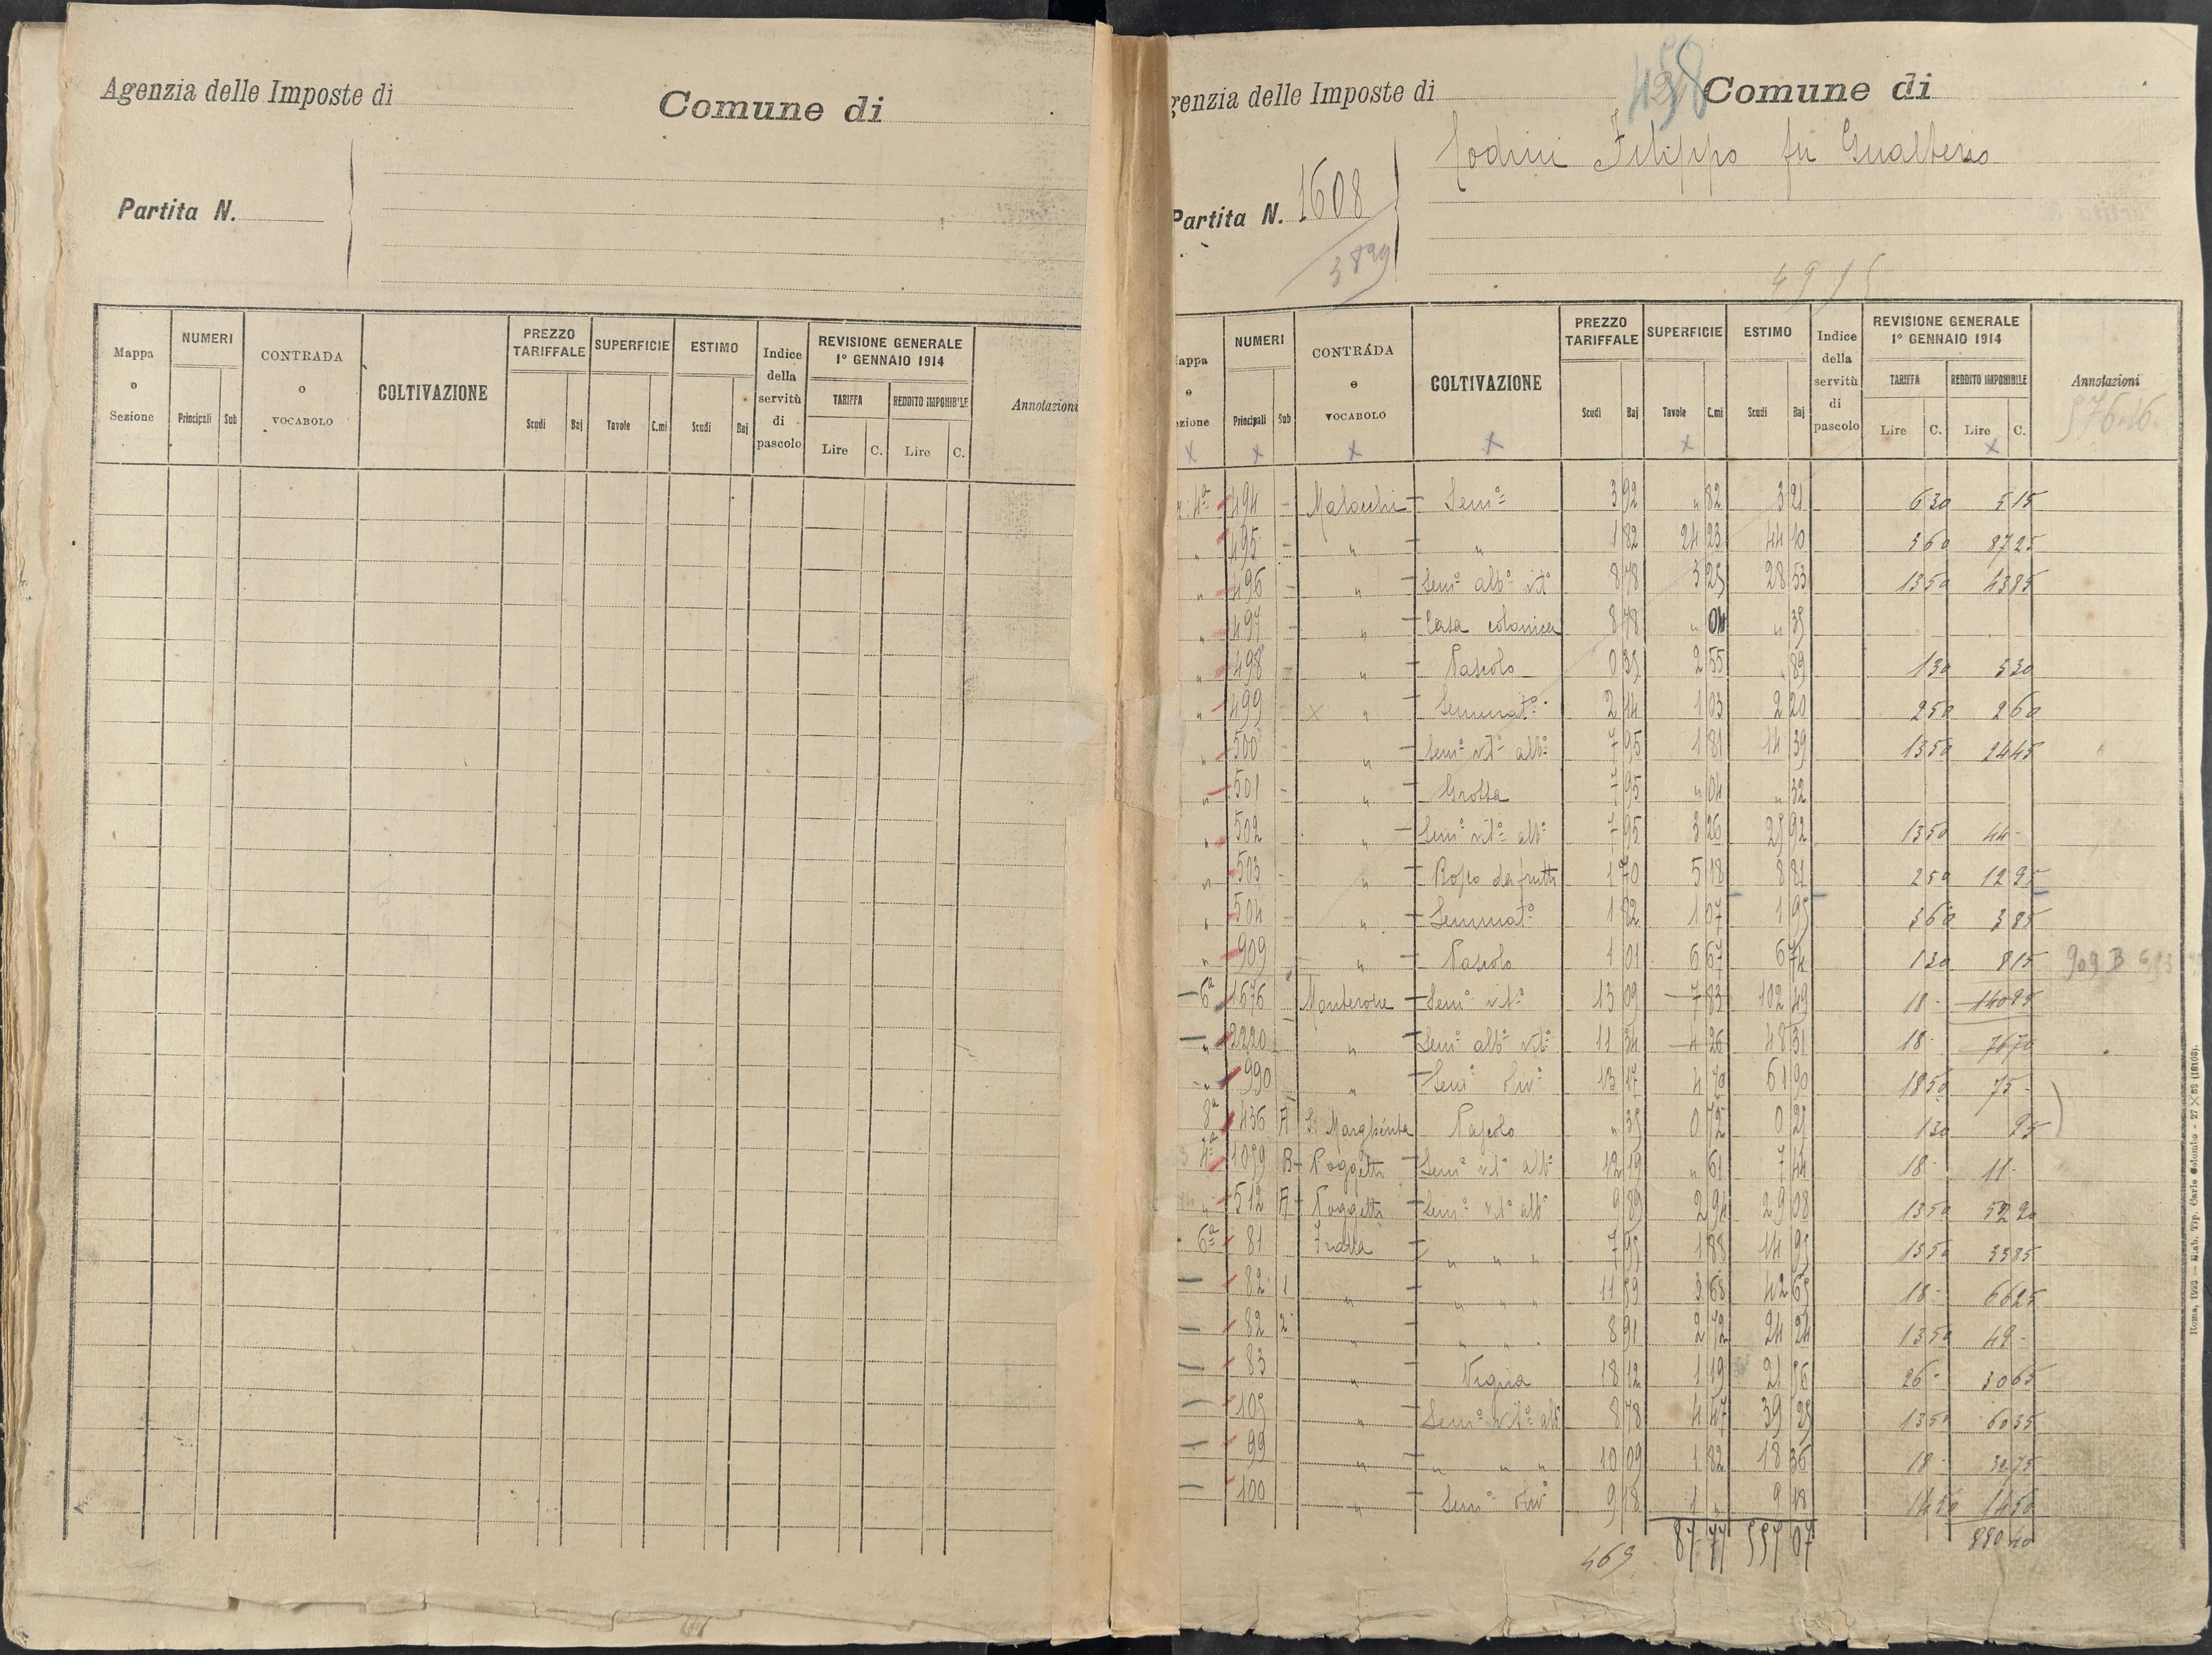 Agenzia delle Imposte di
Comune di
Partita N.
Mappa o Sezione | NUMERI Principali Sub | CONTRADA o VOCABOLO | COLTIVAZIONE | PREZZO TARIFFALE Scudi Baj | SUPERFICIE Tavole C.mi | ESTIMO Scudi Baj | Indice della servitù di pascolo | REVISIONE GENERALE 1º GENNAIO 1914 TARIFFA Lire C. REDDITO IMPONIBILE Lire C. | Annotazioni
genzia delle Imposte di
458 Comune di
Filippo fu Gualterio
Partita N. 1608
3899
4915
appa o ezione | NUMERI Principali Sub | CONTRADA o VOCABOLO | COLTIVAZIONE | PREZZO TARIFFALE Scudi Baj | SUPERFICIE Tavole C.mi | ESTIMO Scudi Baj | Indice della servitù di pascolo | REVISIONE GENERALE 1º GENNAIO 1914 TARIFFA Lire C. REDDITO IMPONIBILE Lire C. | Annotazioni
576.16
x x x x x x
4ª 494 - Malocchi - Semº 3 92 " 82 3 21 6 30 5 15
" 495 - " - " 1 82 24 23 44 10 3 60 87 25
" 496 - " - Semº albº vitº 8 78 3 25 28 53 13 50 43 85
" 497 - " - Casa colonica 8 78 " 04 " 35
" 498 - " - Pascolo 0 35 2 55 " 89 1 30 3 30
" 499 x " - Seminatº 2 14 1 03 2 20 2 50 2 60
" 500 - " - Semº vitº albº 7 95 1 81 14 39 13 50 24 45
" 501 - " - Grotta 7 95 " 04 " 32
" 502 " - Semº vitº albº 7 95 3 26 25 92 13 50 44 -
" 503 - " - Bosco da frutti 1 70 5 18 8 81 2 50 12 95
" 504 - " - Seminatº 1 82 1 07 1 95 3 60 3 85
" 909 - " - Pascolo 1 01 6 67 6 74 1 30 8 15 909 B
6ª 1676 Monterone - Semº vitº 13 09 7 83 102 49 18 - 140 95
" 2220 " - Semº albº vitº 11 34 4 26 48 31 18 - 76 70
" 990 " - Semº olivº 13 17 4 70 61 90 18 50 75 -
8ª 436 A S. Margherita Pascolo " 35 0 72 0 25 1 30 95
1059 B - Poggetti - Semº vitº albº 12 19 " 61 7 44 18 - 11 -
" 512 A - Poggetti - Semº vitº albº 9 89 2 94 29 08 13 50 52 90
6ª 81 - " " " 7 95 1 88 14 95 13 50 33 85
82 1 " - " " " 11 59 3 68 42 65 18 - 66 25
82 2 " - " " " 8 91 2 72 24 24 13 50 49 -
83 " - Vigna 18 12 1 19 21 56 26 - 30 65
105 " - Semº vitº albº 8 78 4 47 39 25 13 50 60 35
99 " - " " " 10 09 1 82 18 36 18 - 32 75
100 " Semº olivº 9 18 1 " 9 18 14 50 14 50
465 87 77 557 07 880 40
Roma, 1923 — Stab. Tip. Carlo Colombo - 27 × 38